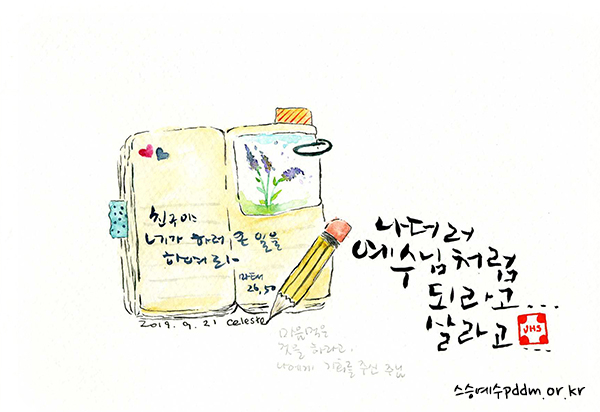 친구야
네가 하러 온 일을
하여라.
마태
26,50
2019. 9. 21 celeste
나더러
예수님처럼
되라고...
살라고...
JHS
마음먹은
것을 하라고.
나에게 기회를 주신 주님
스승예수pddm.or.kr